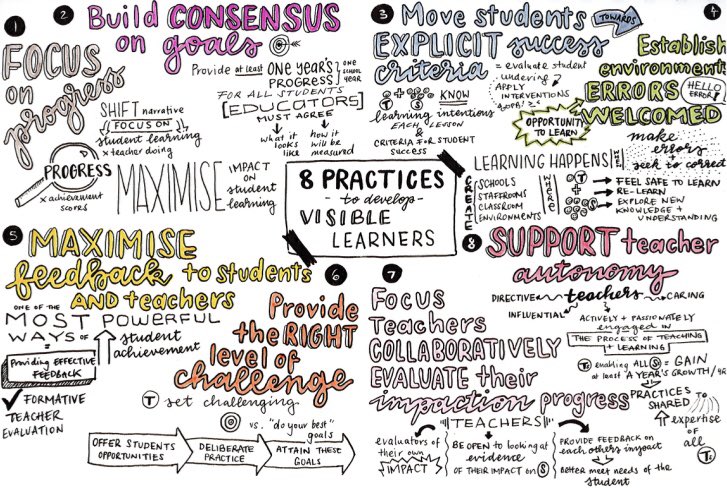 1
FOCUS
on
progress
SHIFT narrative
FOCUS ON
student learning
x teacher doing
PROGRESS
x achievement
scores
MAXIMISE
IMPACT ON
student
learning
2
Build CONSENSUS
on goals
Provide at least ONE YEAR'S
PROGRESS
one
school
year
FOR ALL STUDENTS
[EDUCATORS]
MUST AGREE
what it
looks
like
how it
will be
measured
8 PRACTICES
- to develop -
VISIBLE
LEARNERS
3
Move students
TOWARDS
EXPLICIT success
criteria
= evaluate student
APPLY
INTERVENTIONS
T
S
KNOW
learning intentions
EACH LESSON
&
CRITERIA FOR STUDENT
SUCCESS
4
Establish
environment
ERRORS
WELCOMED
HELLO
ERROR!
OPPORTUNITY
TO LEARN
make
errors
seek to correct
LEARNING HAPPENS
CREATE
SCHOOLS
STAFFROOMS
CLASSROOM
ENVIRONMENTS
WHERE
T
S
FEEL SAFE TO LEARN
RE-LEARN
EXPLORE NEW
KNOWLEDGE +
UNDERSTANDING
5
MAXIMISE
feedback to students
AND teachers
ONE OF THE
MOST POWERFUL
WAYS OF
student
achievement
=
Providing EFFECTIVE
FEEDBACK
FORMATIVE
TEACHER
EVALUATION
6
Provide
the RIGHT
level of
challenge
T set challenging
vs. "do your best"
goals
OFFER STUDENTS
OPPORTUNITIES
DELIBERATE
PRACTICE
ATTAIN THESE
GOALS
7
FOCUS
Teachers
COLLABORATIVELY
EVALUATE their
impact on progress
TEACHERS
evaluators of
their own
IMPACT
BE OPEN to looking at
evidence
OF THEIR IMPACT ON S
PROVIDE FEEDBACK ON
each others impact
Better meet needs of the
student
8
SUPPORT teacher
autonomy
DIRECTIVE
teachers
CARING
INFLUENTIAL
ACTIVELY + PASSIONATELY
engaged in
THE PROCESS OF TEACHING
+ LEARNING
T enabling ALL S = GAIN
at least 'A YEAR'S GROWTH/YR
PRACTICES
SHARED
expertise
of
all
Ts